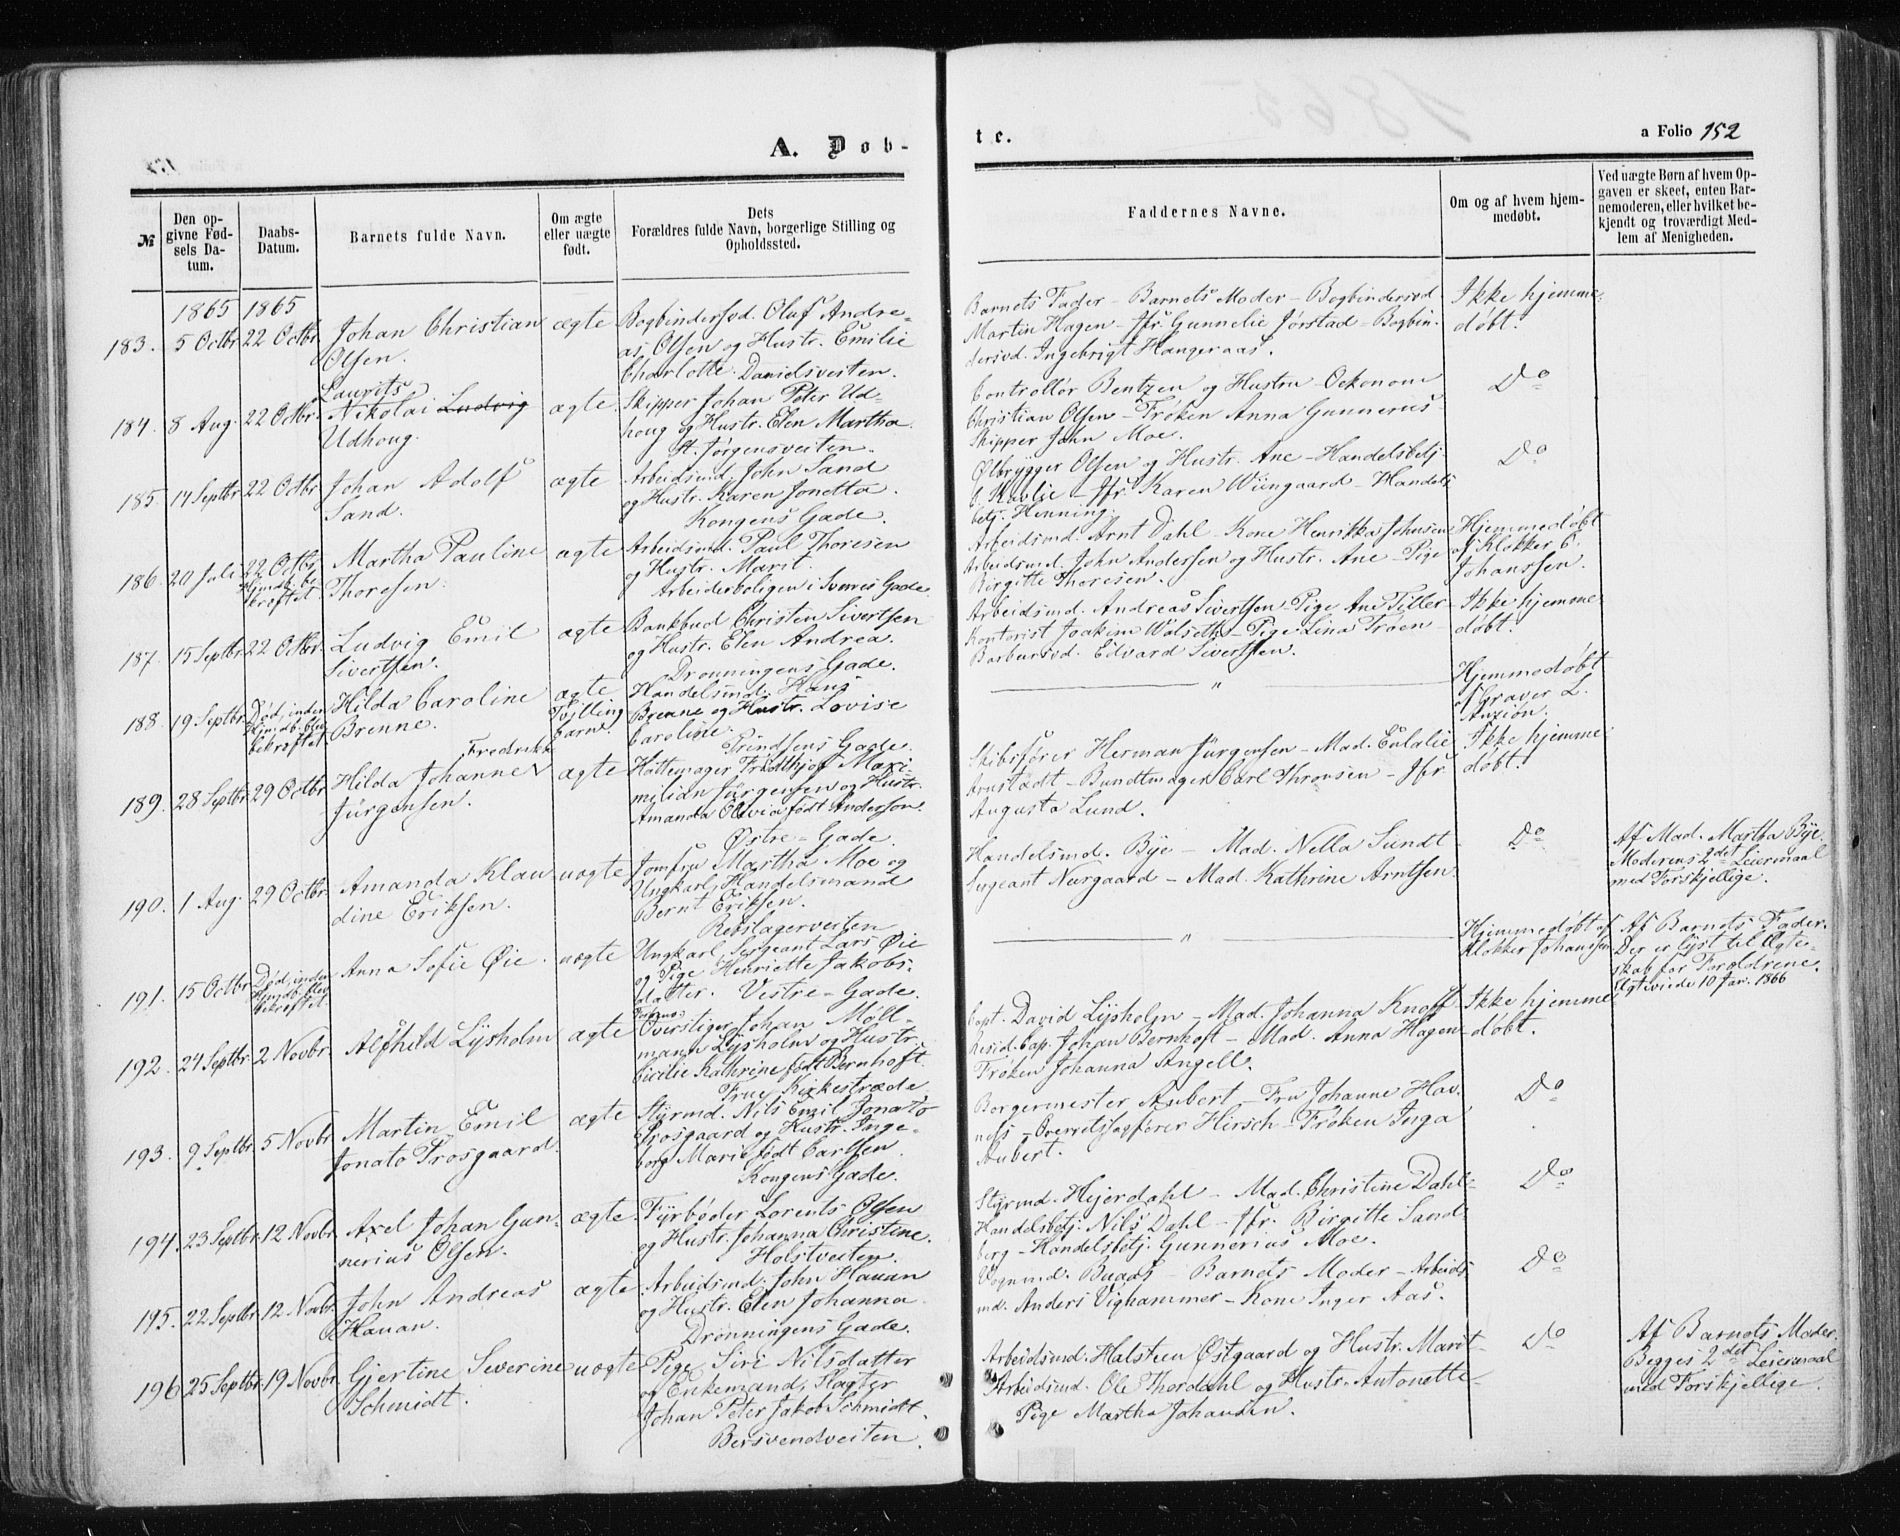 A. Døb-
№
Den op-
givne Fød-
sels Da-
tum.
Daabs-
Datum.
Barnets fulde Navn.
Om ægte
eller uægte
født.
Dets
Forældres fulde Navn, borgerlige Stilling og
Opholdssted.
1865 1865
183. 5 Octbr 22 Octbr Johan Christian
Olsen.
ægte
Bogbindersvd. Oluf Andre-
as Olsen og Hustr. Emilie
Charlotte. Danielsveiten.
184. 8 Aug. 22 Octbr.
Laurits
Nikolai Ludvig
Udhoug.
ægte.
Skipper Johan Peter Ud-
houg og Hustr. Elen Martha.
St. Jørgensveiten.
185. 14 Septbr 22 Octbr
Johan Adolf
Sand.
ægte
Arbeidsmd. John Sand
og Hustr. Karen Jonetta.
Kongens Gade.
186. 20 Juli
22 Octbr.
Hjmdb. be
kræftet.
Martha Pauline
Thoresen.
ægte
Arbeidsmd. Paul Thoresen
og Hustr. Marit.
Arbeiderboligen i Svenes Gade.
187. 15 Septbr 22 Octbr.
Ludvig Emil
Sivertsen.
ægte
Bankbud Christen Sivertsen
og Hustr. Elen Andrea.
Dronningens Gade.
188. 19 Septbr.
Død, inden
Hjmdb. blev
bekræftet.
Hilda Caroline
Brenne.
ægte
Tvilling
barn.
Handelsmd. Hans
Brenne og Hustr. Lovise
Caroline.
Prindsens Gade.
189. 28 Septbr 29 Octbr
Fredrikke
Hilda Johanne
Jürgensen.
ægte
Hattemager Fridthjof Maxi-
milian Jürgensen og Hustr.
Amanda Olivia født Anderson.
Østre-Gade.
190. 1 Aug. 29 Octbr
Amanda Klau
dine Eriksen.
uægte
Jomfru Martha Moe og
Ungkarl, Handelsmand
Bernt Eriksen.
Rebslagerveiten
191. 15 Octbr
Død, inden
Hjmdb. blev
bekræftet
Anna Sofie Øie.
uægte
Ungkarl, Sergeant Lars Øie
og Pige Henriette Jakobs-
datter. Vestre-Gade.
192. 24 Septbr. 2 Novbr.
Alfhild Lysholm
ægte
Overstiger Johan Møll-
mann Lysholm og Hustr.
Cicilie Kathrine født Bernhoft.
Frue Kirkestræde
193. 9 Septbr. 5 Novbr
Martin Emil
Jonato Prosgaard.
ægte
Styrmd. Nils Emil Jonato
Prosgaard og Hustr. Inge-
borg Marie født Carlsen.
Kongens Gade.
194. 23 Septbr. 12 Novbr
Axel Johan Gun-
nerius Olsen.
ægte.
Fyrbøder Lorents Olsen
og Hustr. Johanna Christine.
Holstveiten.
195. 22 Septbr 12 Novbr.
John Andreas
Hauan.
ægte
Arbeidsmd. John Hauan
og Hustr. Elen Johanna.
Dronningens Gade.
196 25 Septbr. 19 Novbr.
Gjertine Severine
Schmidt.
uægte
Pige Siri Nilsdatter
og Enkemand, Slagter
Johan Peter Jakob Schmidt.
Bersvendveiten.
te.
a Folio 152
Faddernes Navne.
Om og af hvem hjem-
medøbt.
Ved uægte Børn af hvem Op-
gaven er skeet, enten Bar-
nemoderen, eller hvilket be-
kjendt og troværdigt Med-
lem af Menigheden.
Barnets Fader - Barnets Moder - Bogbindersvd
Martin Hagen - Jfr. Gunnelie Jørstad - Bogbin-
dersvd. Ingebrigt Hangeraas.
Ikke hjemme-
døbt.
Controllør Bentzen og Hustru - Oekonom
Christian Olsen - Frøken Anna Gunnerus -
Skipper John Moe.
Do
Ølbrygger Olsen og Hustr. Ane - Handelsbetj.
Havlie - Jfr. Karen Wiingaard - Handels
betj. Henning.
Do
Arbeidsmd. Arnt Dahl - Kone Henrikka Johnsen
Arbeidsmd. John Anderssen og Hustr. Ane - Pige
Birgitte Thoresen.
Hjemmedøbt
af Klokker C.
Johanssen.
Arbeidsmd. Andreas Sivertsen - Pige Ane Tiller
Kontorist Joakim Wolseth - Pige Lina Troen
Barbersvd. Edvard Sivertsen.
Ikke hjemme-
døbt.
"
Hjemmedøbt
af Graver L.
Skibsfører Herman Jürgensen - Mad. Eulalie
Arnstadt - Bundtmager Carl Thronsen - Jfr
Augusta Lund.
Ikke hjemme-
døbt.
Handelsmd. Bye - Mad. Nella Sundt
Sergeant Neergaard - Mad. Kathrine Arntsen.
Do
Af Mad. Martha Bye.
Moderens 2det Leiermaal
med Forskjellige.
"
Hjemmedøbt af
Klokker Johanssen
Af Barnets Fader.
Der er lyst til Ægte-
skab for Forældrene.
Ægteviede 10 Jan. 1866
Capt. David Lysholm - Mad. Johanna Knoff
Resid. Cap. Johan Bernhoft - Mad. Anna Hagen
Frøken Johanna Angell.
Ikke hjemme
døbt.
Borgermester Aubert - Fru Johanne Hav-
nes - Overretssagfører Hirsch - Frøken Inga
Aubert.
Do
Styrmd. Hejerdahl - Mad. Christine Dahl-
Handelsbetj. Nils Dahl - Jfr. Birgitte Sand-
berg - Handelsbetj. Gunnerius Moe.
Do
Vognmd. Buaas - Barnets Moder - Arbeids
md. Anders Vighammer - Kone Inger Aas.
Do
Arbeidsmd. Halsteen Østgaard og Hustr. Marit -
Arbeidsmd. Ole Thordahl og Hustr. Antonette -
Pige Martha Johansen.
Do
Af Barnets Moder.
Begges 2det Leiermaal
med Forskjellige.